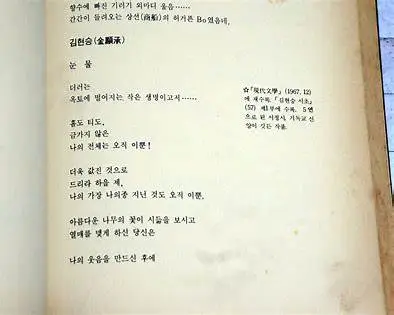 향수에 빠진 기러기 외마디 울음……
간간이 들려오는 상선(商船)의 허거픈 Bo였음데,
김현승(金顯承)
눈 물
더러는
옥토에 떨어지는 작은 생명이고저……
흠도 티도,
금가지 않은
나의 전체는 오직 이뿐!
더욱 값진 것으로
드리라 하올 제,
나의 가장 나아종 지닌 것도 오직 이뿐.
아름다운 나무의 꽃이 시듦을 보시고
열매를 맺게 하신 당신은
나의 웃음을 만드신 후에
☆「現代文學」(1967. 12)
에 재수록. 「김현승 시초」
(57) 제1부에 수록. 5연
으로 된 서정시. 기독교 신
앙이 깃든 작품.